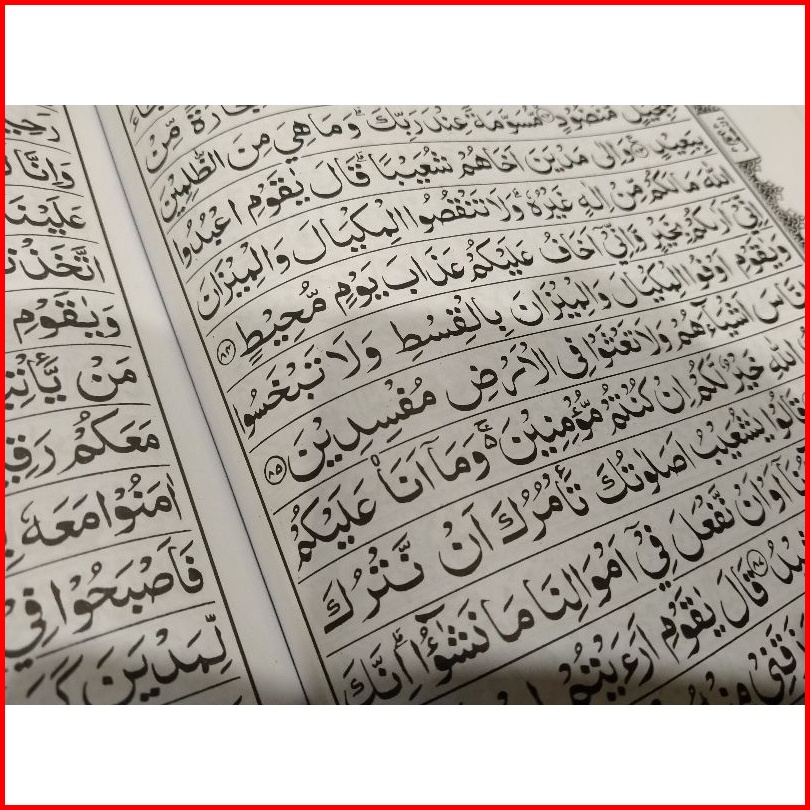 حِجَارَةً مِّنْ
سِجِّيْلٍ مَّنْضُوْدٍ مُّسَوَّمَةً عِنْدَ رَبِّكَ وَمَا هِيَ مِنَ الظّٰلِمِيْنَ
بِبَعِيْدٍ ﴿۸۳﴾ وَاِلٰى مَدْيَنَ اَخَاهُمْ شُعَيْبًا قَالَ يٰقَوْمِ اعْبُدُوا
اللّٰهَ مَا لَكُمْ مِّنْ اِلٰهٍ غَيْرُهٗ وَلَا تَنْقُصُوا الْمِكْيَالَ وَالْمِيْزَانَ
اِنِّيْٓ اَرٰىكُمْ بِخَيْرٍ وَّاِنِّيْٓ اَخَافُ عَلَيْكُمْ عَذَابَ يَوْمٍ مُّحِيْطٍ ﴿۸۴﴾
وَيٰقَوْمِ اَوْفُوا الْمِكْيَالَ وَالْمِيْزَانَ بِالْقِسْطِ وَلَا تَبْخَسُوا
النَّاسَ اَشْيَآءَهُمْ وَلَا تَعْثَوْا فِى الْاَرْضِ مُفْسِدِيْنَ ﴿۸۵﴾
اللّٰهِ خَيْرٌ لَّكُمْ اِنْ كُنْتُمْ مُّؤْمِنِيْنَ وَمَآ اَنَا عَلَيْكُمْ
قَالُوْا يٰشُعَيْبُ اَصَلٰوتُكَ تَأْمُرُكَ اَنْ نَّتْرُكَ
اَوْ اَنْ نَّفْعَلَ فِيْٓ اَمْوَالِنَا مَا نَشٰٓؤُا اِنَّكَ
﴿۸۷﴾ قَالَ يٰقَوْمِ اَرَءَيْتُمْ
وَاِنَّا
عَلَيْنَا
اتَّخَذْتُ
وَيٰقَوْمِ
مَنْ يَّأْتِيْ
مَعَكُمْ رَقِيْ
اٰمَنُوْا مَعَهٗ
فَاَصْبَحُوْا فِيْ
لِّمَدْيَنَ كَمَا